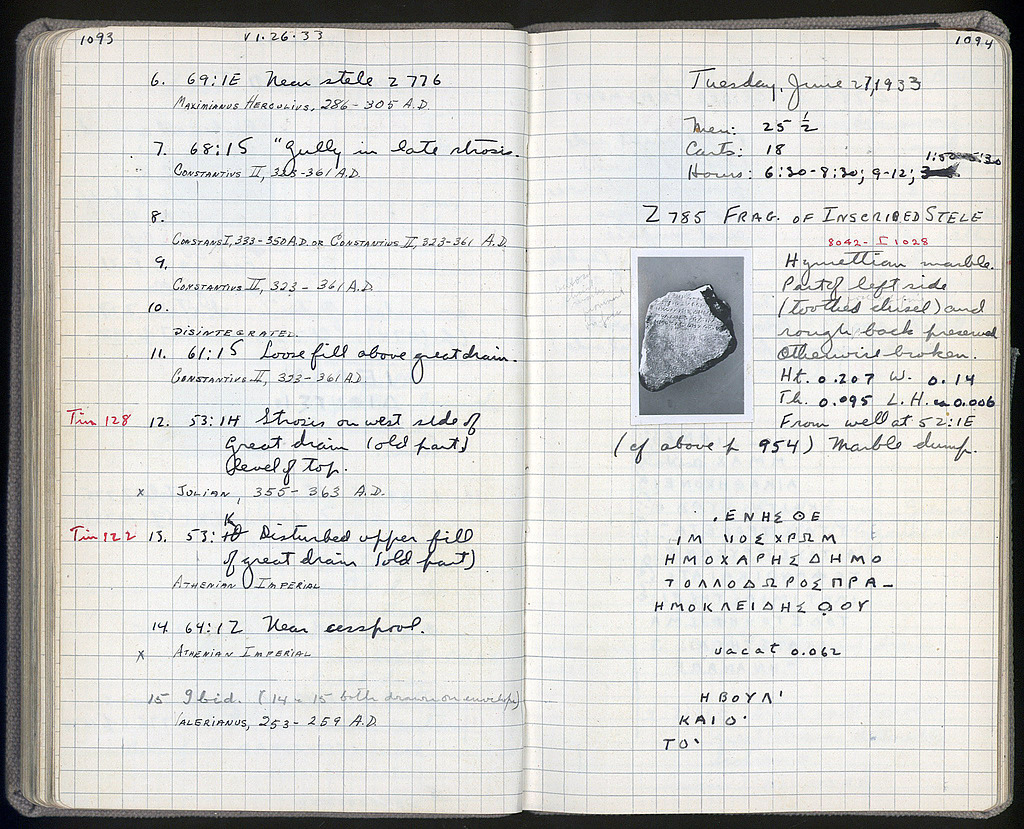 1093
VI.26.33
6. 69:ΙΕ Near stele Z 776
MAXIMIANUS HERCULIUS, 286-305 A.D.
7. 68:ΙΕ "Gully in late strosis.
CONSTANTIUS II, 323-361 A.D.
8.
CONSTANS I, 333-350 A.D. OR CONSTANTIUS II, 323-361 A.D.
9.
CONSTANTIUS II, 323-361 A.D.
10.
DISINTEGRATED.
11. 61:ΙΕ Loose fill above great drain.
CONSTANTIUS II, 323-361 A.D.
Tin 128 12. 53:ΙΗ Strosis on west side of
Great drain (old part)
level of top.
x JULIAN, 355-363 A.D.
K
Tin 122 13. 53: Disturbed upper fill
of great drain (old part)
ATHENIAN IMPERIAL
14. 64:ΙΖ Near cesspool.
x ATHENIAN IMPERIAL
15 Ibid. (14 & 15 both drawn on envelope)
VALERIANUS, 253-259 A.D.
1094
Tuesday, June 27, 1933
Men: 25 ½
Carts: 18
1:30-5:30
Hours: 6:30-8:30; 9-12;
Z 785 FRAG. OF INSCRIBED STELE
8042- I 1028
Hymettian marble.
Part of left side
(toothed chisel) and
rough back preserved
Otherwise broken.
Ht. 0.207 W. 0.14
Th. 0.095 L.H. ca 0.006
From well at 52:ΙΕ
(cf above p 954) Marble dump.
. Ε Ν Η Σ Θ Ε
Ι Μ Ι Ι Ο Σ Χ Ρ Ω Μ
Η Μ Ο Χ Α Ρ Η Σ Δ Η Μ Ο
Τ Ο Λ Λ Ο Δ Ω Ρ Ο Σ Π Ρ Α _
Η Μ Ο Κ Λ Ε Ι Δ Η Σ Φ Ο Υ
vacat 0.062
Η Β Ο Υ Λ '
Κ Α Ι Ο '
Τ Ο '